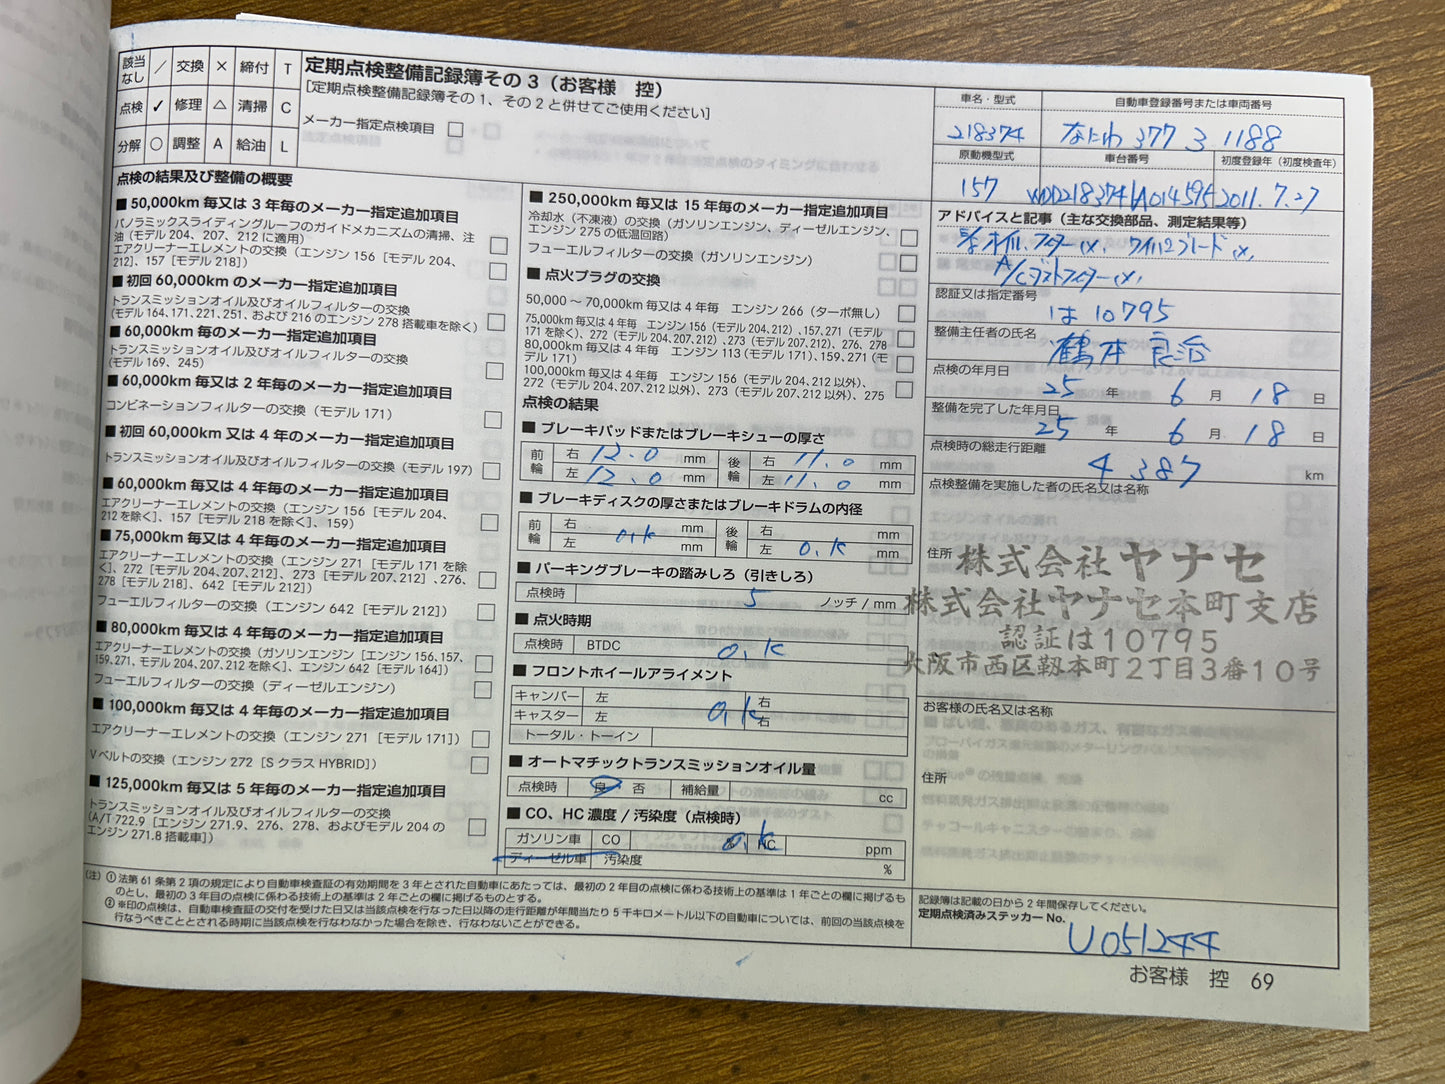 該当なし ／ 交換 × 締付 T
点検 ✓ 修理 △ 清掃 C
分解 ○ 調整 A 給油 L
定期点検整備記録簿その３（お客様　控）
［定期点検整備記録簿その１、その２と併せてご使用ください］
メーカー指定点検項目 □
点検の結果及び整備の概要
■ 50,000km 毎又は３年毎のメーカー指定追加項目
パノラミックスライディングルーフのガイドメカニズムの清掃、注
油（モデル 204、207、212 に適用） □
エアクリーナーエレメントの交換（エンジン 156［モデル 204、
212］、157［モデル 218］） □
■ 初回 60,000km のメーカー指定追加項目
トランスミッションオイル及びオイルフィルターの交換
（モデル 164、171、221、251、および 216 のエンジン 278 搭載車を除く） □
■ 60,000km 毎のメーカー指定追加項目
トランスミッションオイル及びオイルフィルターの交換
（モデル 169、245） □
■ 60,000km 毎又は２年毎のメーカー指定追加項目
コンビネーションフィルターの交換（モデル 171） □
■ 初回 60,000km 又は４年毎のメーカー指定追加項目
トランスミッションオイル及びオイルフィルターの交換（モデル 197） □
■ 60,000km 毎又は４年毎のメーカー指定追加項目
エアクリーナーエレメントの交換（エンジン 156［モデル 204、
212 を除く］、157［モデル 218 を除く］、159） □
■ 75,000km 毎又は４年毎のメーカー指定追加項目
エアクリーナーエレメントの交換（エンジン 271［モデル 171 を除
く］、272［モデル 204、207、212］、273［モデル 207、212］、276、
278［モデル 218］、642［モデル 212］） □
フューエルフィルターの交換（エンジン 642［モデル 212］） □
■ 80,000km 毎又は４年毎のメーカー指定追加項目
エアクリーナーエレメントの交換（ガソリンエンジン［エンジン 156、157、
159、271、モデル 204、207、212 を除く］、エンジン 642［モデル 164］） □
フューエルフィルターの交換（ディーゼルエンジン） □
■ 100,000km 毎又は４年毎のメーカー指定追加項目
エアクリーナーエレメントの交換（エンジン 271［モデル 171］） □
Ｖベルトの交換（エンジン 272［S クラス HYBRID］） □
■ 125,000km 毎又は５年毎のメーカー指定追加項目
トランスミッションオイル及びオイルフィルターの交換
（A/T 722.9［エンジン 271.9、276、278、およびモデル 204 の
エンジン 271.8 搭載車］） □
■ 250,000km 毎又は 15 年毎のメーカー指定追加項目
冷却水（不凍液）の交換（ガソリンエンジン、ディーゼルエンジン、
エンジン 275 の低温回路） □
フューエルフィルターの交換（ガソリンエンジン） □
■ 点火プラグの交換
50,000 ～ 70,000km 毎又は４年毎　エンジン 266（ターボ無し） □
75,000km 毎又は４年毎　エンジン 156（モデル 204、212）、157、271（モデル
171 を除く）、272（モデル 204、207、212）、273（モデル 207、212）、276、278 □
80,000km 毎又は４年毎　エンジン 113（モデル 171）、159、271（モ
デル 171） □
100,000km 毎又は４年毎　エンジン 156（モデル 204、212 以外）、
272（モデル 204、207、212 以外）、273（モデル 207、212 以外）、275 □
点検の結果
■ ブレーキパッドまたはブレーキシューの厚さ
前輪 右 12.0 mm 後輪 右 11.0 mm
左 12.0 mm 左 11.0 mm
■ ブレーキディスクの厚さまたはブレーキドラムの内径
前輪 右 mm 後輪 右 mm
左 o.k mm 左 o.k mm
■ パーキングブレーキの踏みしろ（引きしろ）
点検時 5 ノッチ / mm
■ 点火時期
点検時 BTDC o.k
■ フロントホイールアライメント
キャンバー 左 右
キャスター 左 o.k 右
トータル・トーイン
■ オートマチックトランスミッションオイル量
点検時 良 否 補給量 cc
■ CO、HC 濃度 / 汚染度（点検時）
ガソリン車 CO o.k HC ppm
ディーゼル車 汚染度 %
（注）① 法第 61 条第２項の規定により自動車検査証の有効期間を３年とされた自動車にあたっては、最初の２年目の点検に係わる技術上の基準は１年ごとの欄に掲げるも
のとし、最初の３年目の点検に係わる技術上の基準は２年ごとの欄に掲げるものとする。
② ※印の点検は、自動車検査証の交付を受けた日又は当該点検を行なった日以降の走行距離が年間当たり５千キロメートル以下の自動車については、前回の当該点検を
行なうべきこととされる時期に当該点検を行なわなかった場合を除き、行なわないことができる。
車名・型式 自動車登録番号または車両番号
218374 なにわ 377 ろ 1188
原動機型式 車台番号 初度登録年（初度検査年）
157 WDD2183741A014595 2011.7.27
アドバイスと記事（主な交換部品、測定結果等）
オイル、フィルター(×. ワイパーブレード(×.
A/Cダストフィルター(×.
認証又は指定番号
は 10795
整備主任者の氏名
鶴本 良治
点検の年月日
25 年 6 月 18 日
整備を完了した年月日
25 年 6 月 18 日
点検時の総走行距離
4387 km
点検整備を実施した者の氏名又は名称
住所
株式会社ヤナセ
株式会社ヤナセ本町支店
認証は１０７９５
大阪市西区靱本町２丁目３番１０号
お客様の氏名又は名称
住所
記録簿は記載の日から２年間保存してください。
定期点検済みステッカー No.
U051244
お客様　控　69